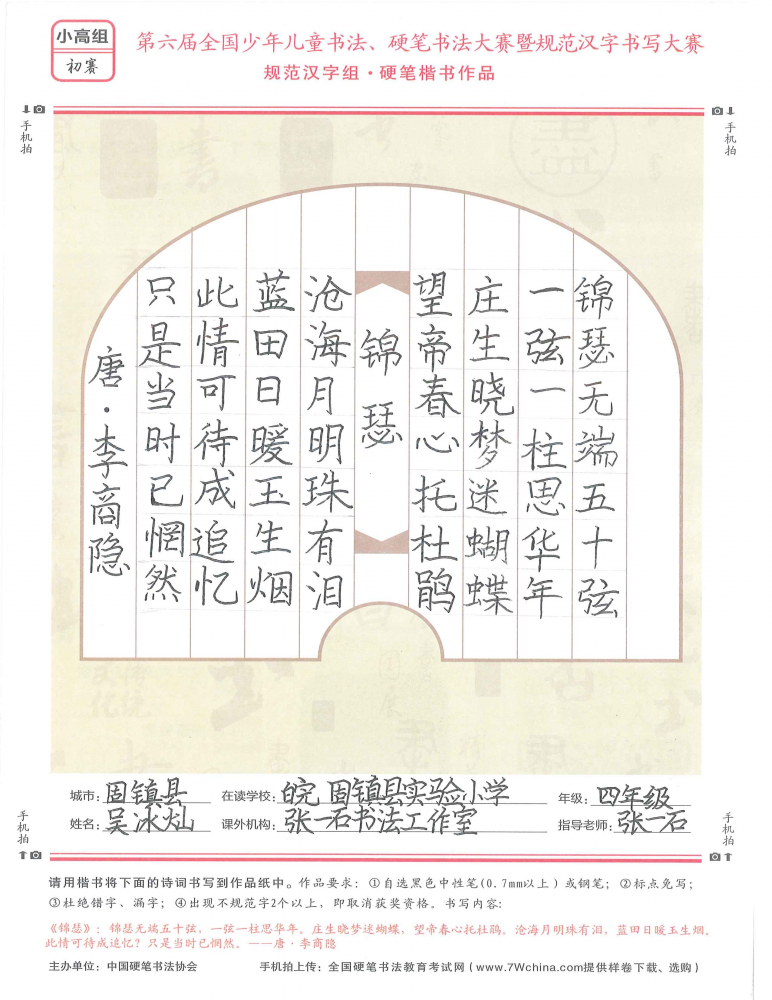 小高组
初赛
第六届全国少年儿童书法、硬笔书法大赛暨规范汉字书写大赛
规范汉字组·硬笔楷书作品
手机拍
手机拍
锦瑟无端五十弦
一弦一柱思华年
庄生晓梦迷蝴蝶
望帝春心托杜鹃
锦瑟
沧海月明珠有泪
蓝田日暖玉生烟
此情可待成追忆
只是当时已惘然
唐·李商隐
城市：固镇县 在读学校：皖固镇县实验小学 年级：四年级
姓名：吴冰灿 课外机构：张一石书法工作室 指导老师：张一石
手机拍
手机拍
请用楷书将下面的诗词书写到作品纸中。作品要求：①自选黑色中性笔(0.7mm以上)或钢笔；②标点免写；
③杜绝错字、漏字；④出现不规范字2个以上，即取消获奖资格。书写内容：
《锦瑟》：锦瑟无端五十弦，一弦一柱思华年。庄生晓梦迷蝴蝶，望帝春心托杜鹃。沧海月明珠有泪，蓝田日暖玉生烟。
此情可待成追忆？只是当时已惘然。——唐·李商隐
主办单位：中国硬笔书法协会 手机拍上传：全国硬笔书法教育考试网（www.7Wchina.com提供样卷下载、选购）